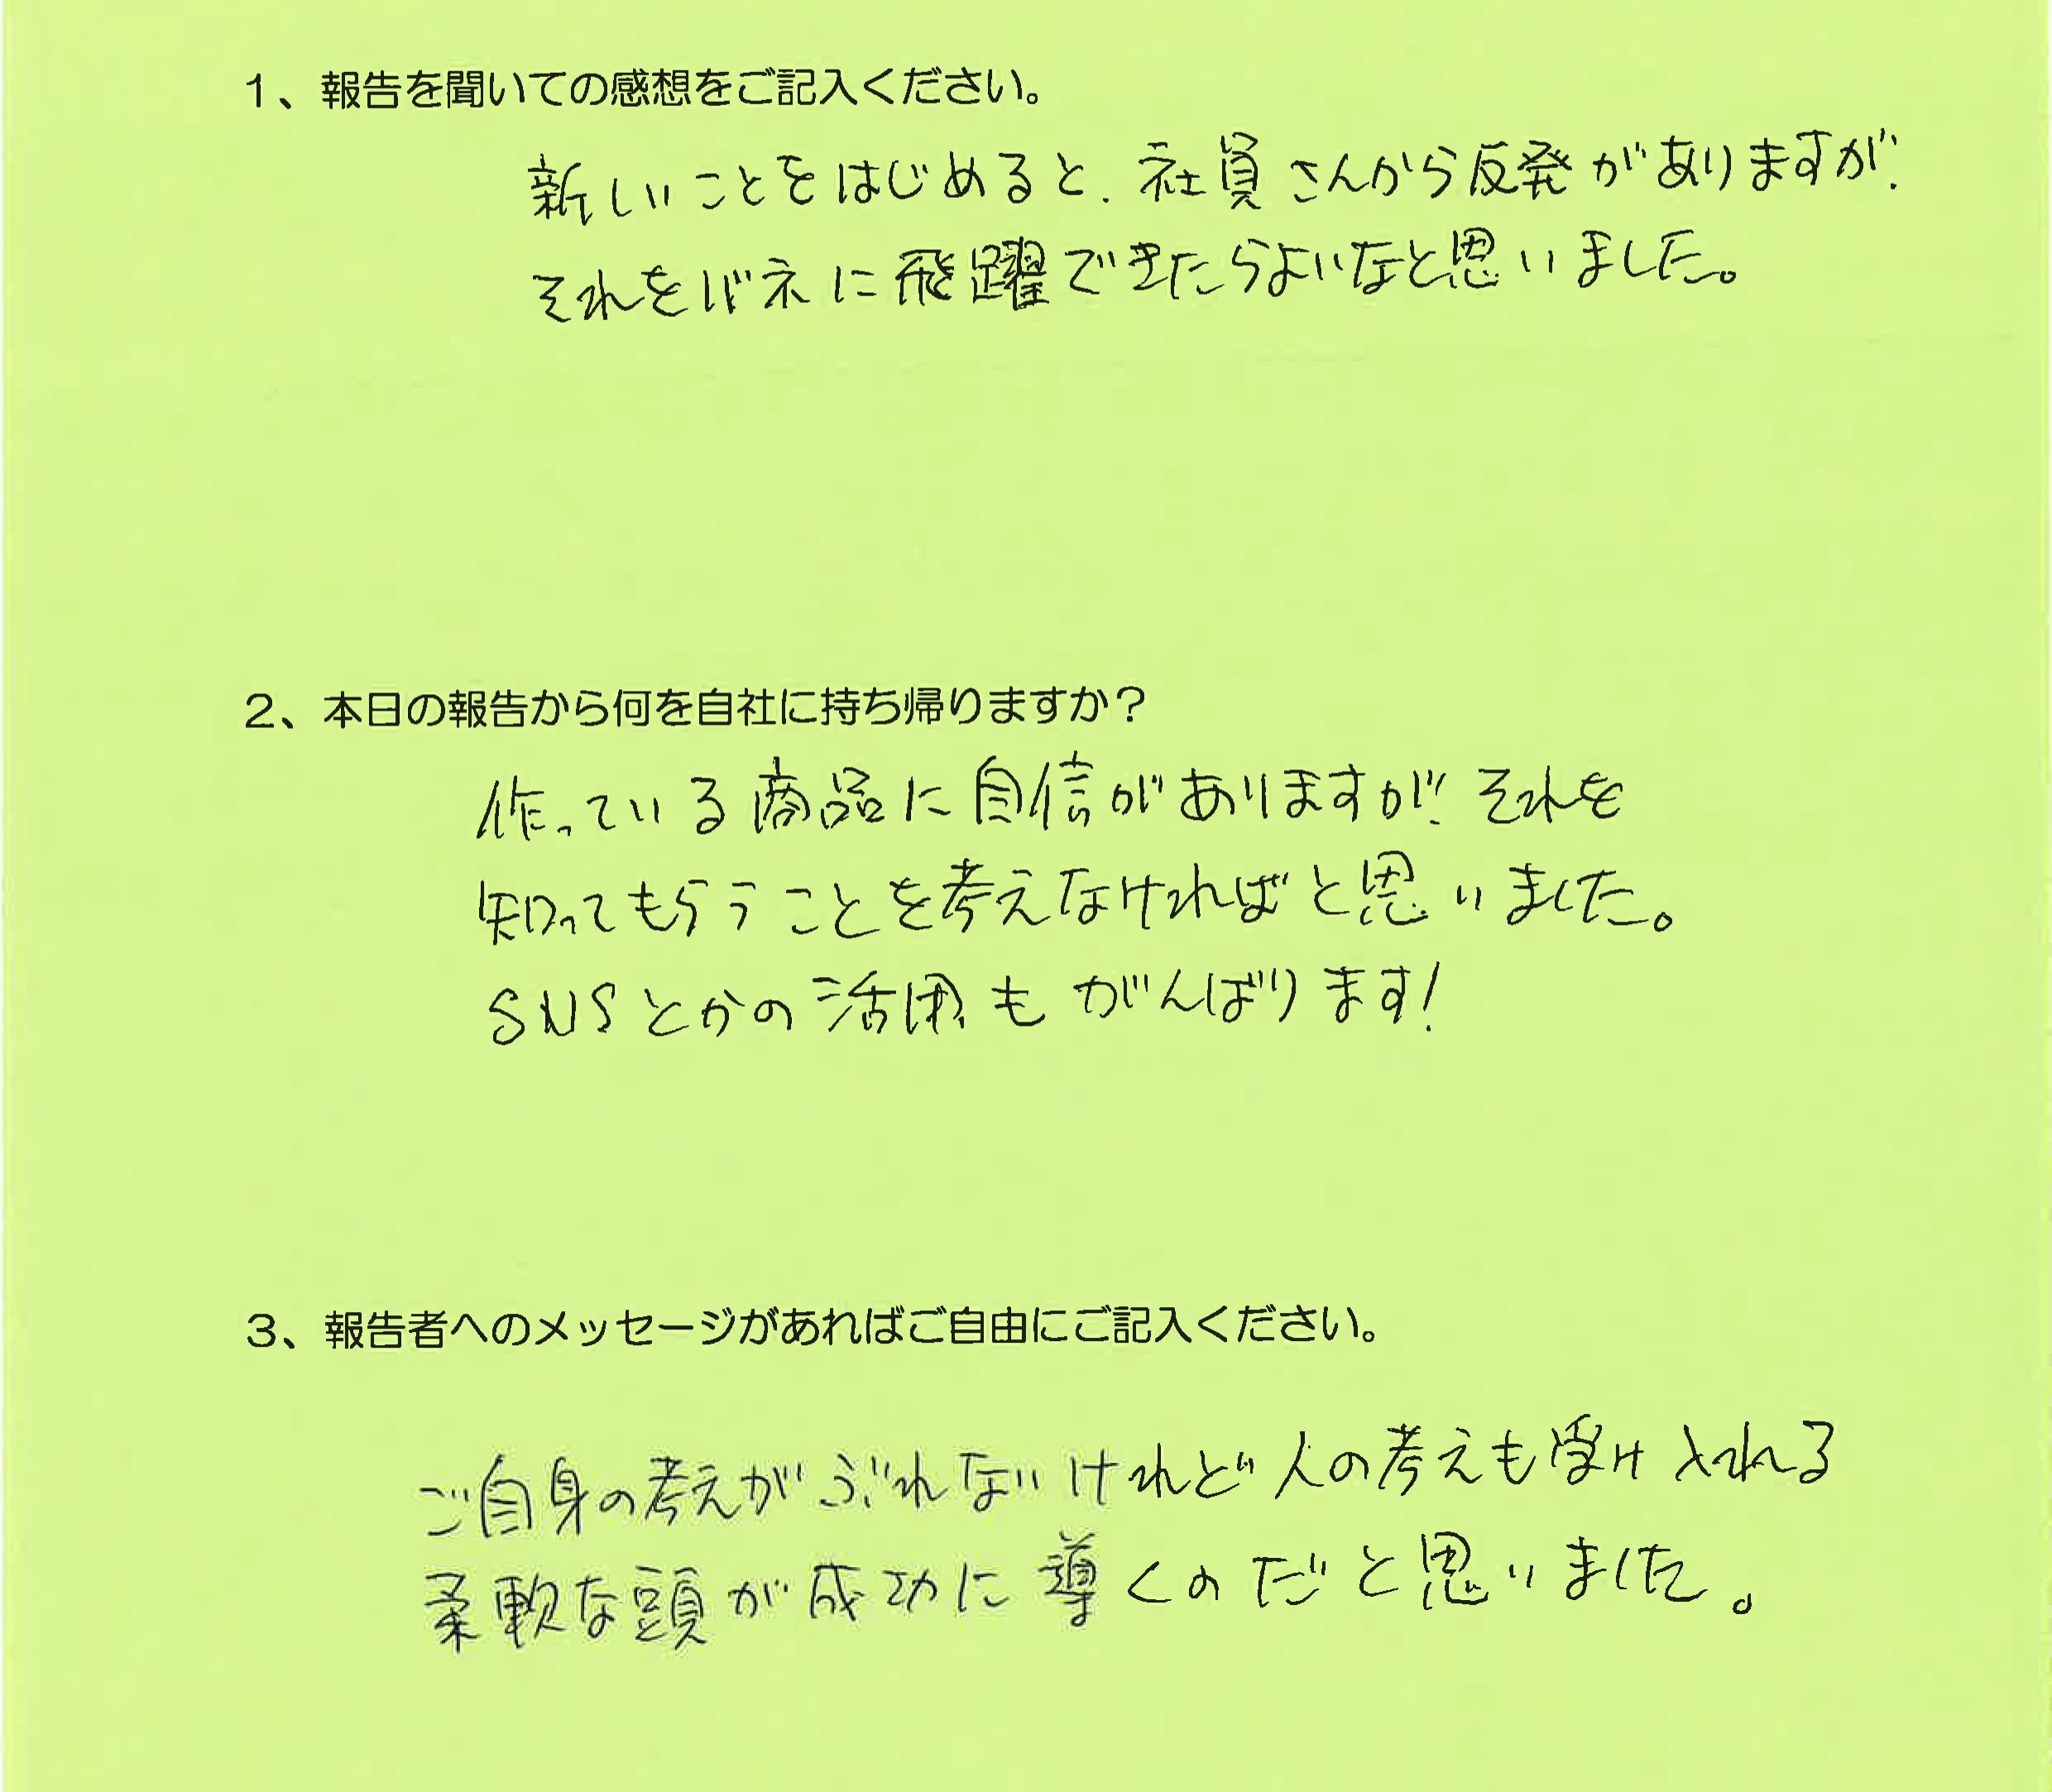 1、報告を聞いての感想をご記入ください。
新しいことをはじめると、社員さんから反発がありますが、
それをバネに飛躍できたらよいなと思いました。
2、本日の報告から何を自社に持ち帰りますか？
作っている商品に自信がありますが、それを
知ってもらうことを考えなければと思いました。
SNSとかの活用もがんばります!
3、報告者へのメッセージがあればご自由にご記入ください。
ご自身の考えがぶれないけれど人の考えも受け入れる
柔軟な頭が成功に導くのだと思いました。